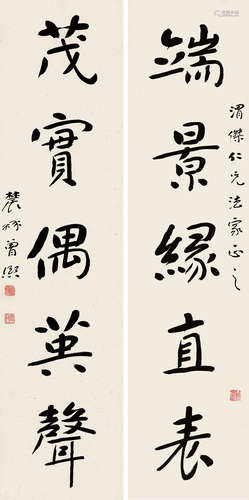 渭傑仁兄法家正之
端景緣直表
茂實偶英聲
農髯曾熙